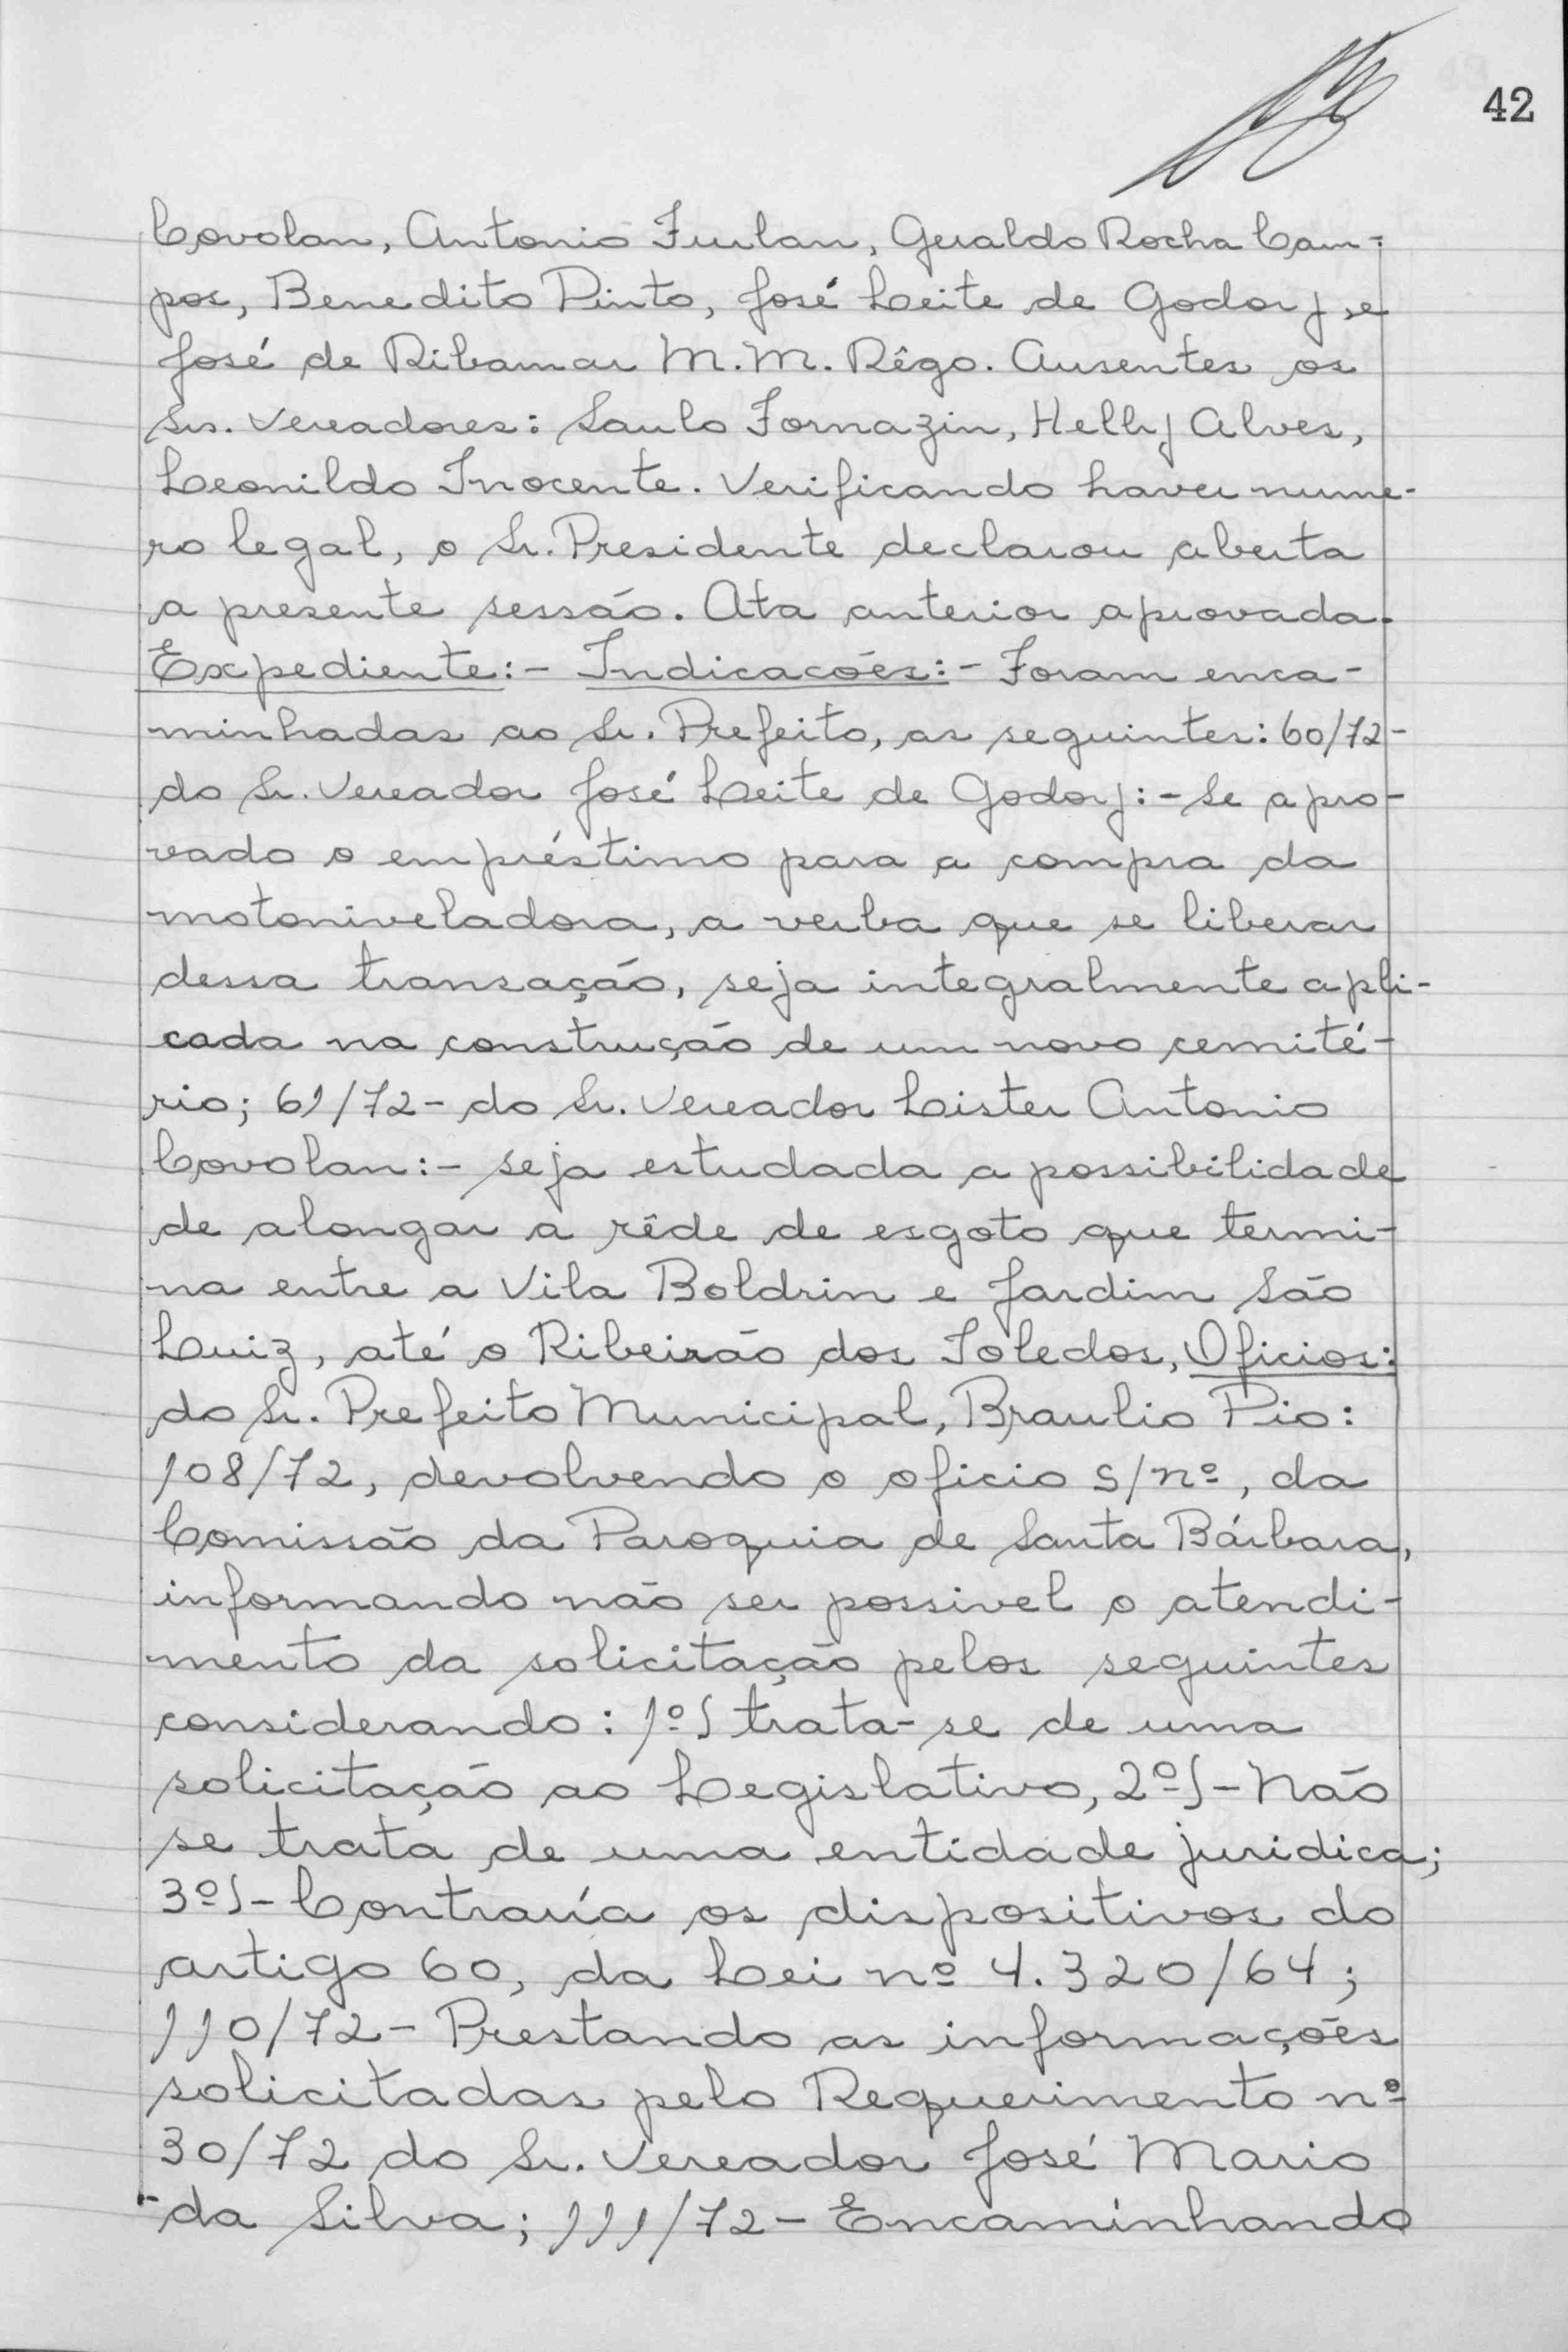 42
Covolan, Antonio Furlan, Geraldo Rocha Cam-
pos, Benedito Pinto, José Leite de Godoy, e
José de Ribamar M.M. Rêgo. Ausentes os
Srs. Vereadores: Saulo Fornazin, Helly Alves,
Leonildo Inocente. Verificando haver nume-
ro legal, o Sr. Presidente declarou aberta
a presente sessão. Ata anterior aprovada.
Expediente:- Indicacões:- Foram enca-
minhadas ao Sr. Prefeito, as seguintes: 60/72-
do Sr. Vereador José Leite de Godoy:- Se apro-
vado o empréstimo para a compra da
motoniveladora, a verba que se liberar
dessa transação, seja integralmente apli-
cada na construção de um novo cemité-
rio; 61/72- do Sr. Vereador Lister Antonio
Covolan:- seja estudada a possibilidade
de alongar a rêde de esgoto que termi-
na entre a Vila Boldrin e Jardim São
Luiz, até o Ribeirão dos Toledos, Oficios:
do Sr. Prefeito Municipal, Braulio Pio:
108/72, devolvendo o oficio S/nº, da
Comissão da Paroquia de Santa Bárbara,
informando não ser possivel o atendi-
mento da solicitação pelos seguintes
considerando: 1º) trata-se de uma
solicitação ao Legislativo, 2º)- Não
se trata de uma entidade juridica;
3º)- Contraría os dispositivos do
artigo 60, da Lei nº 4.320/64;
110/72- Prestando as informações
solicitadas pelo Requerimento nº
30/72 do Sr. Vereador José Mario
da Silva; 111/72- Encaminhando